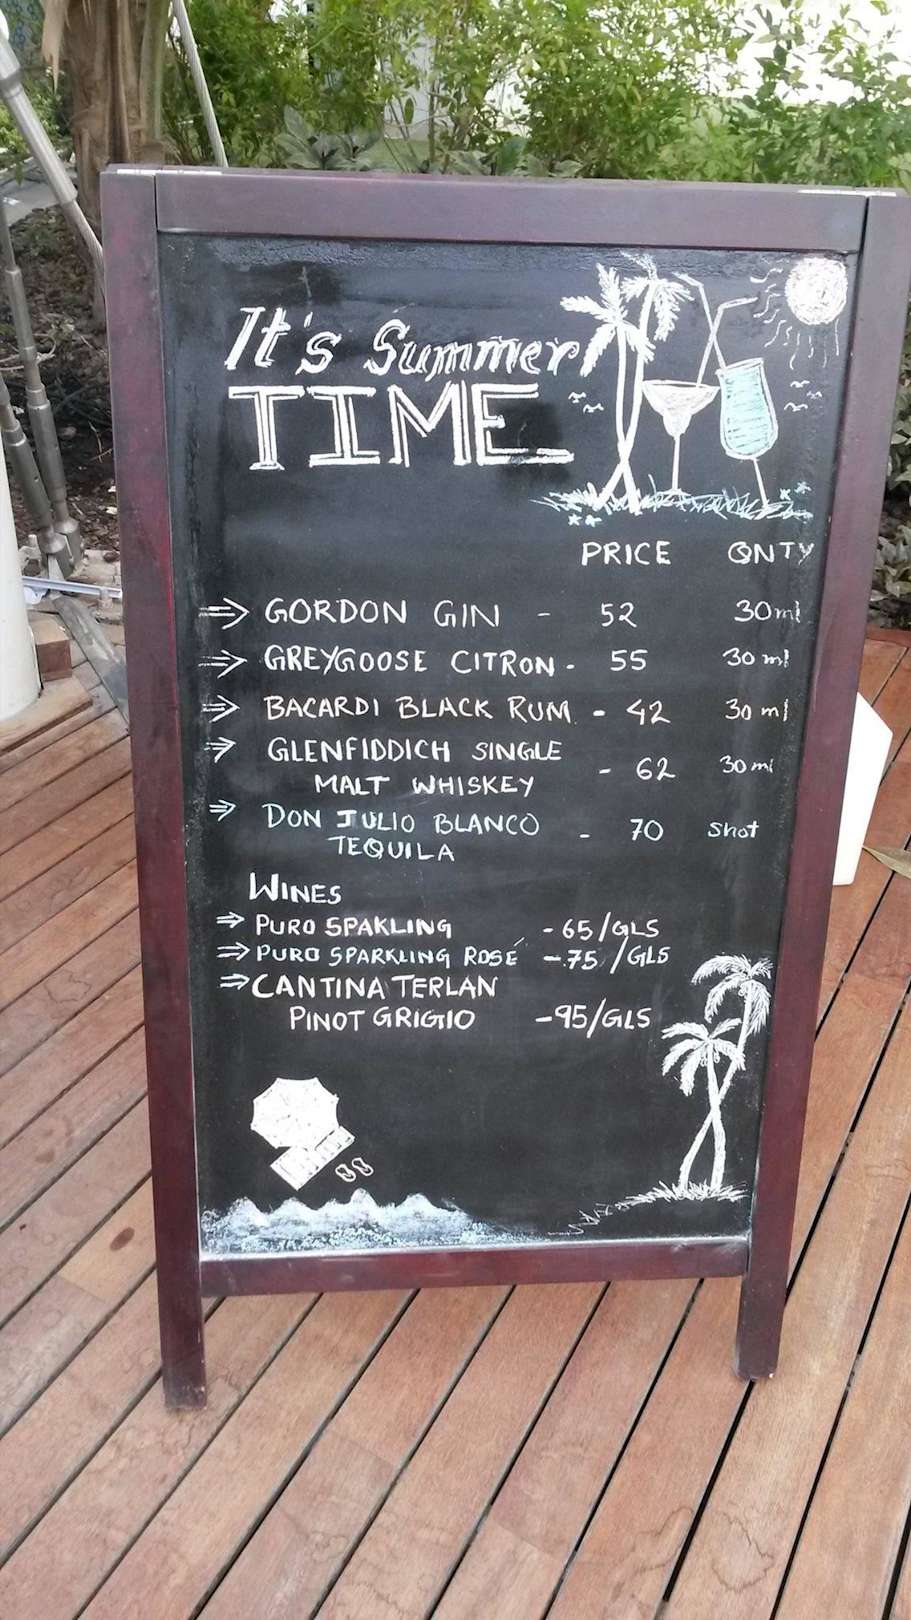 It's Summer
TIME
PRICE QNTY
GORDON GIN - 52 30ml
GREYGOOSE CITRON - 55 30ml
BACARDI BLACK RUM - 42 30ml
GLENFIDDICH SINGLE
MALT WHISKEY - 62 30ml
DON JULIO BLANCO
TEQUILA - 70 shot
WINES
PURO SPAKLING - 65/GLS
PURO SPARKLING ROSÉ - 75/GLS
CANTINA TERLAN
PINOT GRIGIO - 95/GLS